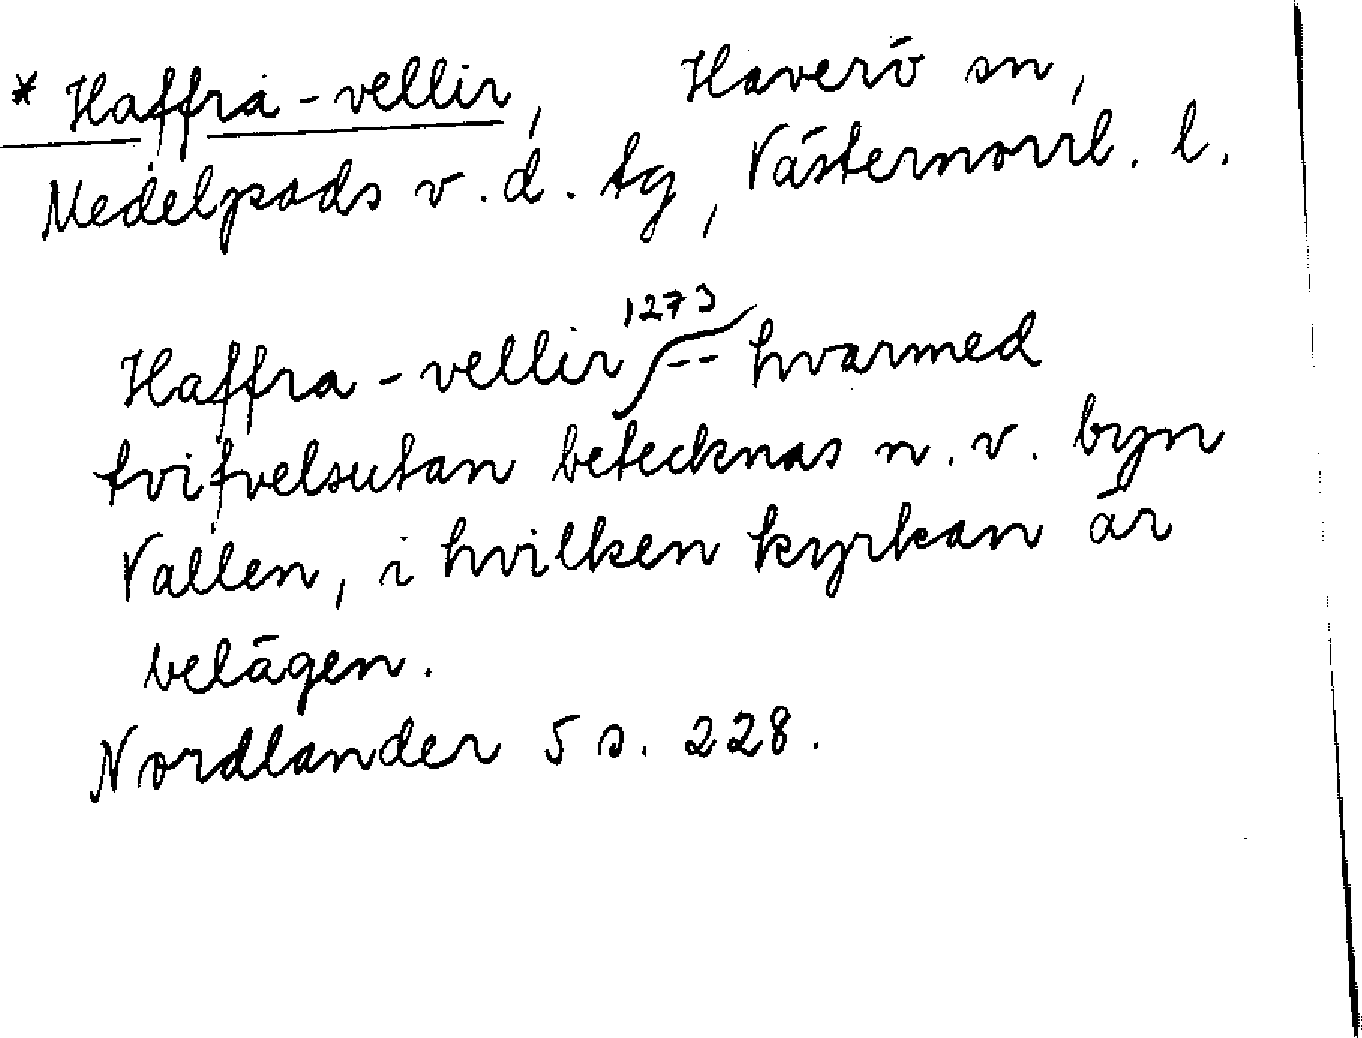 * Haffra-vellir, Haverö sn,
Medelpads v.d. tg, Västernorrl. l.
Haffra-vellir 1273 -- hvarmed
tvifvelsutan betecknas n.v. byn
Vallen, i hvilken kyrkan är
belägen.
Nordlander 5 s. 228.